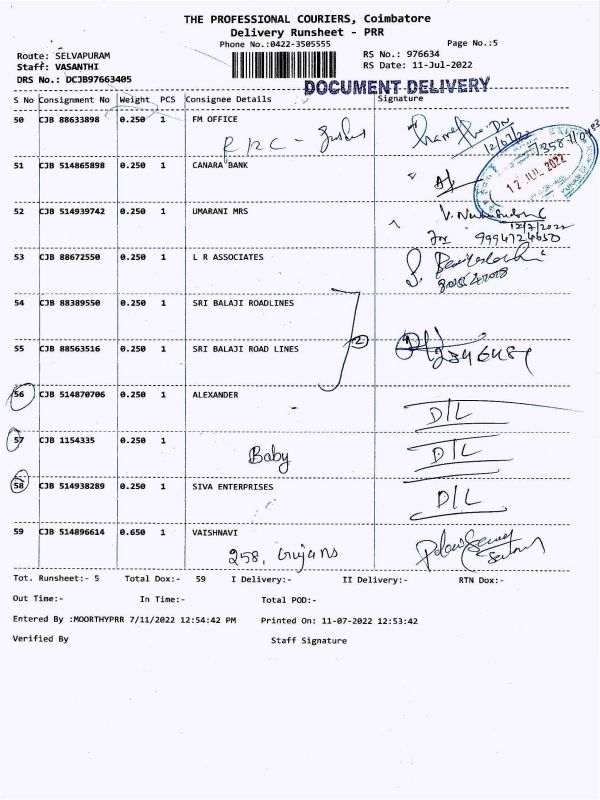 THE PROFESSIONAL COURIERS, Coimbatore
Delivery Runsheet - PRR
Phone No.:0422-3505555
Page No.:5
Route: SELVAPURAM
RS No.: 976634
Staff: VASANTHI
RS Date: 11-Jul-2022
DRS No.: DCJB97663405
DOCUMENT DELIVERY
S No Consignment No Weight PCS Consignee Details Signature
50 CJB 88633898 0.250 1 FM OFFICE
12/07/22
51 CJB 514865898 0.250 1 CANARA BANK
12 JUL 2022
52 CJB 514939742 0.250 1 UMARANI MRS
12/7/2022
9994724650
53 CJB 88672550 0.250 1 L R ASSOCIATES
54 CJB 88389550 0.250 1 SRI BALAJI ROADLINES
2
55 CJB 88563516 0.250 1 SRI BALAJI ROAD LINES
56 CJB 514870706 0.250 1 ALEXANDER
D/L
57 CJB 1154335 0.250 1
Baby D/L
58 CJB 514938289 0.250 1 SIVA ENTERPRISES
D/L
59 CJB 514896614 0.650 1 VAISHNAVI
258,
Tot. Runsheet:- 5 Total Dox:- 59 I Delivery:- II Delivery:- RTN Dox:-
Out Time:- In Time:- Total POD:-
Entered By :MOORTHYPRR 7/11/2022 12:54:42 PM Printed On: 11-07-2022 12:53:42
Verified By Staff Signature